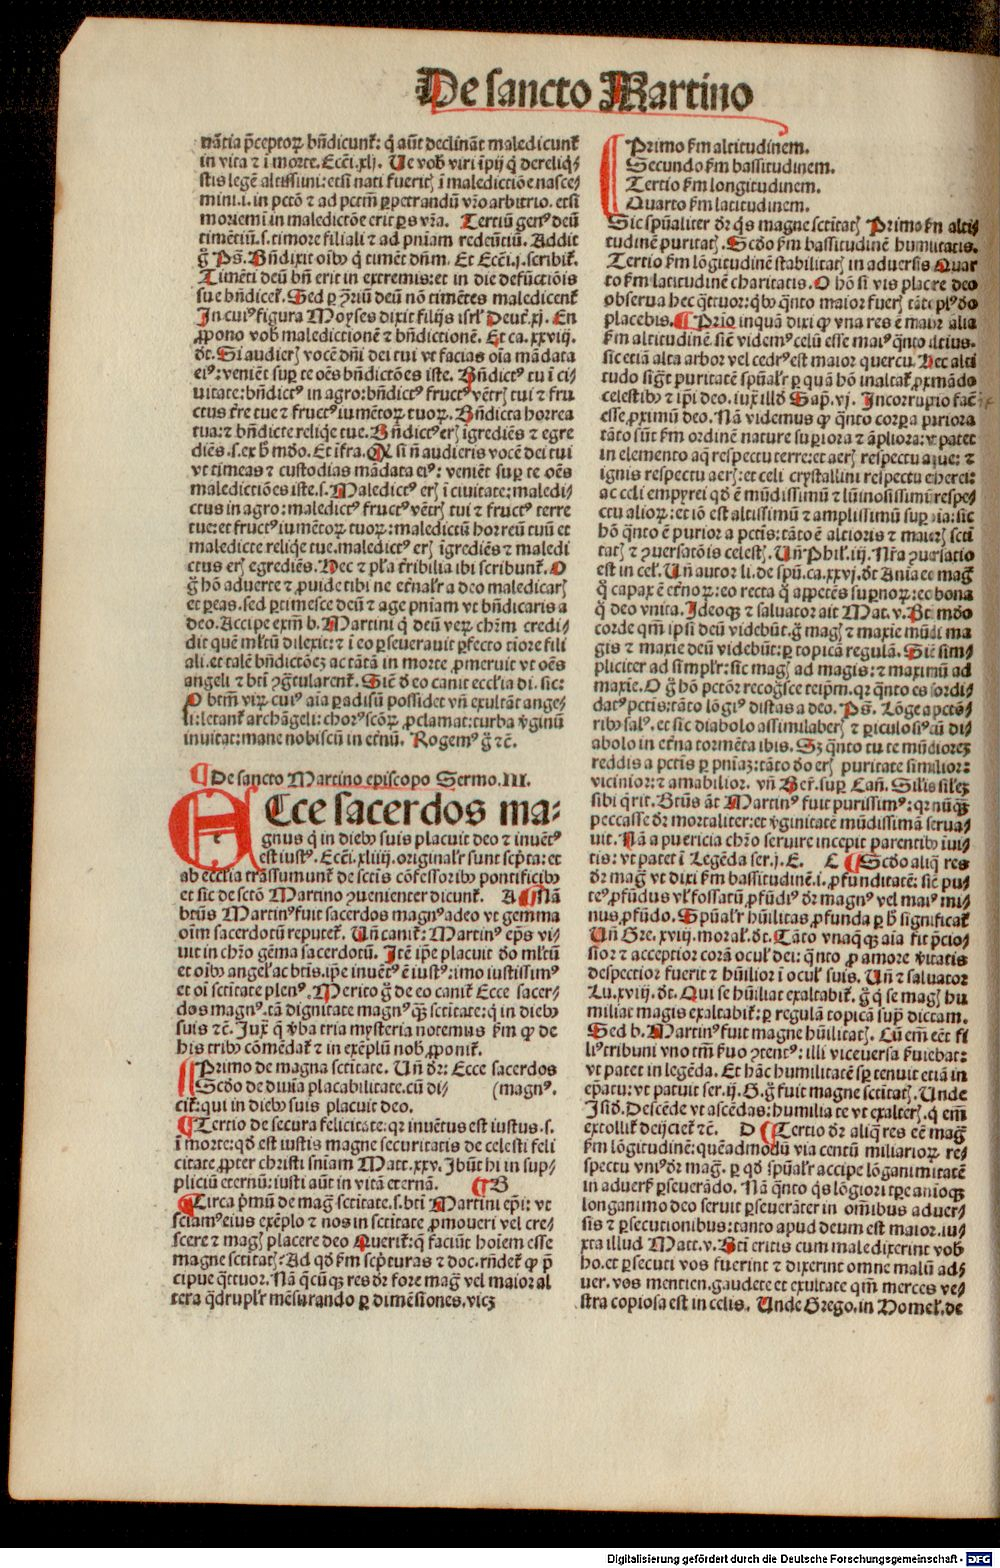 De sancto Martino
nātia p̄ceptoꝝ bn̄dicunt̉: q̇ aūt declināt maledicunt̉
in vita ⁊ ī morte. Ecc̄i.xlj. Ue vob̛ viri īpij q̇ dereliq̄-
stis legē altissimi: etsi nati fuerit̛ ī maledictiōe nasce-
mini.i. in pctō ⁊ ad pctm̄ ꝑpetrandū vr̄o arbitrio. etsi
moriemī in maledictōe erit ꝑs vr̄a. Tertiū genꝰ deū
timētiū.s. timore filiali ⁊ ad pniam redeūtiū. Addit
g̊ Ps. Bn̄dixit oib̛ q̇ timēt dn̄m. Et Ecc̄i.j. scribit̉.
Timēti deū bn̄ erit in extremis: et in die defūctiōis
sue bn̄dicet̉. Sed ꝑ ꝯriū deū nō timētes maledicent̉
In cuiꝰ figura Moyses dixit filijs isrl̉ Deut̉.xj. En
ꝓpono vob̛ maledictionē ⁊ bn̄dictionē. Et ca.xxviij.
dt̉. Si audier̛ vocē dn̄i dei tui vt facias oīa mādata
eiꝰ: veniēt suꝑ te oēs bn̄dictōes iste. Bn̄dictꝰ tu ī ci-
uitate: bn̄dictꝰ in agro: bn̄dictꝰ fructꝰ vētr̛ tui ⁊ fru
ctus tr̄e tue ⁊ fructꝰ iumētoꝝ tuoꝝ. Bn̄dicta horrea
tua: ⁊ bn̄dicte reliq̄e tue. Bn̄dictꝰ er̛ īgrediēs ⁊ egre
diēs .s. ex b̛ mōo. Et īfra. Q̄ si n̄ audieris vocē dei tui
vt timeas ⁊ custodias mādata eiꝰ: veniēt suꝑ te oēs
maledictiōes iste.s. Maledictꝰ er̛ ī ciuitate: maledi-
ctus in agro: maledictꝰ fructꝰ vētr̛ tui ⁊ fructꝰ terre
tue: et fructꝰ iumētoꝝ tuoꝝ: maledictū horreū tuū et
maledicte reliq̄e tue. maledictꝰ er̛ īgrediēs ⁊ maledi
ctus er̛ egrediēs. Hec ⁊ pl̉a t̉ribilia ibi scribunt̉. O
g̊ hō aduerte ⁊ ꝓuide tibi ne et̉nal̉r a deo maledicar̛
et ꝑeas. sed ꝑtimesce deū ⁊ age pniam vt bn̄dicaris a
deo. Accipe exm̄ b. Martini q̇ deū veꝝ chr̄m credi-
dit quē ml̉tū dilexit: ⁊ ī eo ꝑseuerauit ꝑfecto tiore fili
ali. et talē bn̄dictōeꝫ ac tātā in morte ꝓmeruit vt oēs
angeli ⁊ bt̄i ꝯgr̄tularent̉. Sic̄ ꝺ eo canit eccl̉ia di. sic:
O btm̄ viꝝ cuiꝰ aīa paradisū possidet vn̄ exultāt ange-
li: letant̉ archāgeli: chorꝰ sc̄oꝝ ꝓclamat: turba v̊ginū
inuitat: mane nobiscū in et̉nū. Rogemꝰ g̊ ⁊c̄.
¶ De sancto Martino episcopo Sermo.III.
Ecce sacerdos ma-
gnus q̇ in dieb̛ suis placuit deo ⁊ inuētꝰ
est iustꝰ. Ecc̄i.xliiij. original̉r sunt sc̉pta: et
ab ecclīa trāssumunt̉ de sctis cōfessorib̛ pontificib̛
et sic de sctō Martino ꝯuenienter dicunt̉. A ¶ Nā
btūs Martinꝰ fuit sacerdos magnꝰ adeo vt gemma
oīm sacerdotū reputet̉. Un̄ canit̉: Martinꝰ ep̄s vi-
uit in chr̄o gēma sacerdotū. Itē ip̄e placuit ꝺo ml̉tū
et oib̛ angel̉ ac btīs. ip̄e inuētꝰ ē iustꝰ: imo iustissimꝰ
et oī sctitate plenꝰ. Merito g̊ de eo canit̉ Ecce sacer-
dos magnꝰ. tā dignitate magnꝰ q̄ꝫ sctitate: q̇ in dieb̛
suis ⁊c̄. Iux̉ q̄ v̊ba tria mysteria notemus k̉m ꝙ de
his trib̛ cōmēdat̉ ⁊ in exēplū nob̛ ꝓponit̉.
Primo de magna sctitate. Un̄ dr̄: Ecce sacerdos
Scd̉o de diuīa placabilitate. cū di- (magnꝰ.
cit̉: qui in dieb̛ suis placuit deo.
¶ Tertio de secura felicitate: qr inuētus est iustus .s.
ī morte: qd̉ est iustis magne securitatis de celesti feli
citate ꝓpter christi sniam Matt.xxv. Ibūt hi in sup-
pliciū eternū: iusti aūt in vitā eternā. ¶ B
¶ Circa p̄mū de mag̊ sctitate.s. bt̄i Martini ep̄i: vt
sciamꝰ eius exēplo ⁊ nos in sctitate ꝓmoueri vel cre-
scere ⁊ mag̛ placere deo Querit̉: q̄ faciūt hoīem esse
magne sctitat̛? Ad qd̉ k̉m sc̉pturas ⁊ doc. rn̄det̉ ꝙ p̄
cipue q̄ttuor. Nā q̄cūqꝫ res dr̄ fore mag̊ vel maior al
tera q̄drupl̉r mēsurando ꝑ dimēsiones. vicꝫ
Primo k̉m altitudinem.
Secundo k̉m bassitudinem.
Tertio k̉m longitudinem.
Quarto k̉m latitudinem.
Sic spūaliter dr̄ q̇s magne sctitat̛ Primo k̉m alti-
tudinē puritat̛. Scd̉o k̉m bassitudinē humilitatis.
Tertio k̉m lōgitudinē stabilitat̛ in aduersis Quar
to k̉m latitudinē charitatis. O hō si vis placere deo
obserua hec q̄ttuor: q̇b̛ q̄nto maior fuer̛ tāto plꝰ ꝺo
placebis. ¶ Prio inquā dixi ꝙ vna res ē maior alia
k̉m altitudinē. sic̄ videmꝰ celū esse maiꝰ q̄nto altius.
sic etiā alta arbor vel cedrꝰ est maior quercu. Hec alti
tudo sig̊t puritatē spūal̉r ꝑ quā hō inaltat̉ ꝓximādo
celestib̛ ⁊ ip̄i deo. iux̉ illd̉ Sap̄.vj. Incorruptio fac̄
esse ꝓximū deo. Nā videmus ꝙ q̄nto corꝑa puriora
tāto sūt k̉m ordinē nature suꝑiora ⁊ āpliora: vt patet
in elemento aq̄ respectu terre: et aer̛ respectu aque: ⁊
ignis respectu aer̛: et celi crystallini respectu etherei:
ac celi empyrei qd̉ ē mūdissimū ⁊ lūinosissimū respe-
ctu alioꝝ: et iō est altissimū ⁊ amplissimū suꝑ oīa: sic
hō q̄nto ē purior a pctis: tāto ē altioris ⁊ maior̛ scti
tat̛ ⁊ ꝯuersatōis celest̛. Un̄ Phil̉.iij. Nr̄a ꝯuersatio
est in cel̉. Un̄ autor li. de spū.ca.xxvj. dt̉ Aīa ē mag̊
q̄ capax ē et̉noꝝ: eo recta q̊ appetēs suꝑnoꝝ: eo bona
q̊ deo vnita. Ideoqꝫ ⁊ saluator ait Mat.v. Bt̄i mūdo
corde qm̄ ipsi deū videbūt. g̊ mag̛ ⁊ maxie mūdi ma
gis ⁊ maxie deū videbūt: ꝑ topicā regulā. Sic̄ sim-
pliciter ad simpl̉r: sic mag̛ ad magis: ⁊ maximū ad
maxie. O g̊ hō pctōr recog̊sce teip̄m. qr q̄nto es sordi-
datꝰ pctis: tāto lōgiꝰ distas a deo. Ps. Lōge a pctō-
rib̛ salꝰ. et sic diabolo assimilaber̛ ⁊ ꝑiculosiꝰ cū di-
abolo in et̉na tormēta ibis. Sꝫ q̄nto tu te mūdioreꝫ
reddis a pctis ꝑ pniaꝫ: tāto ꝺo er̛ puritate similior:
vicinior: ⁊ amabilior. vn̄ Ber̉. suꝑ Can̄. Silis sileꝫ
sibi q̇rit. Btūs āt Martinꝰ fuit purissimꝰ: qr nūq̄ꝫ
peccasse dr̄ mortaliter: et v̊ginitatē mūdissimā serua-
uit. Nā a puericia chr̄o seruire incepit parentib̛ iui-
tis: vt patet ī Legēda ser.j. E. C ¶ Scd̉o aliq̄ res
dr̄ mag̊ vt dixi k̉m bassitudinē.i. ꝓfunditatē: sic̄ pu-
teꝰ ꝓfūdus vl̉ fossatū ꝓfūdiꝰ dr̄ magnꝰ vel maiꝰ mi-
nus ꝓfūdo. Spūal̉r hūilitas ꝓfunda ꝑ b̛ significat̉
Un̄ Gre.xviij. moral̉. dt̉. Tāto vnaq̄qꝫ aīa fit p̄cio-
sior ⁊ acceptior corā ocul̉ dei: q̄nto ꝓ amore v̊itatis
despectior fuerit ⁊ hūilior ī ocul̉ suis. Un̄ ⁊ saluator
Lu.xviij. dt̉. Qui se hūiliat exaltabit̉. g̊ q̇ se mag̛ hu
miliat magis exaltabit̉: ꝑ regulā topicā supͣ dictam.
Sed b. Martinꝰ fuit magne hūilitat̛. Cū em̄ eēt fi
liꝰ tribuni vno tm̄ k̉uo ꝯtentꝰ: illi viceuersa k̉uiebat:
vt patet in legēda. Et hāc humilitatē sꝑ tenuit etiā in
ep̄atu: vt patuit ser.ij. G. g̊ fuit magne sctitat̛. Unde
Isid̉. Descēde vt ascēdas: humilia te vt exalter̛. q̇ em̄
extollit̉ deijciet̉ ⁊c̄. D ¶ Tertio dr̄ aliq̄ res eē mag̊
k̉m lōgitudinē: quēadmodū via centū miliarioꝝ re-
spectu vniꝰ dr̄ mag̊. ꝑ qd̉ spūal̉r accipe lōganimitatē
in aduerk̉ ꝑseuerādo. Nā q̄nto q̇s lōgiori tꝑe anioqꝫ
longanimo deo seruit ꝑseuerāter in omībus aduer-
sis ⁊ ꝑsecutionibus: tanto apud deum est maior. iu-
xta illud Matt.v. Bt̄i eritis cum maledixerint vob̛
ho. et ꝑsecuti vos fuerint ⁊ dixerint omne malū ad-
uer. vos mentien. gaudete et exultate qm̄ merces ve-
stra copiosa est in celis. Unde Grego. in Homel̉. de
Digitalisierung gefördert durch die Deutsche Forschungsgemeinschaft - DFG